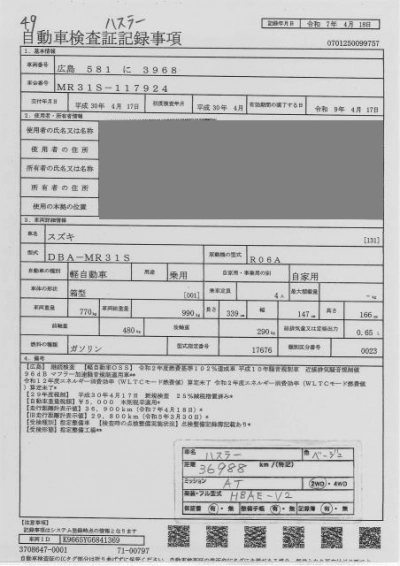 49 ハスラー
記録年月日 令和 7年 4月 18日
自動車検査証記録事項
0701250099757
1．基本情報
車両番号 広島 581 に 3968
車台番号 MR31S-117924
交付年月日 平成 30年 4月 17日 初度検査年月 平成 30年 4月 有効期間の満了する日 令和 9年 4月 17日
2．使用者・所有者情報
使用者の氏名又は名称
使用者の住所
所有者の氏名又は名称
所有者の住所
使用の本拠の位置
3．車両詳細情報
車名 スズキ [131]
型式 DBA-MR31S 原動機の型式 R06A
自動車の種別 軽自動車 用途 乗用 自家用・事業用の別 自家用
車体の形状 箱型 [001] 乗車定員 4人 最大積載量 -kg
車両重量 770kg 車両総重量 990kg 長さ 339cm 幅 147cm 高さ 166cm
前軸重 480kg 後軸重 290kg 総排気量又は定格出力 0.65L
燃料の種類 ガソリン 型式指定番号 17676 類別区分番号 0023
4．備考
[広島] 継続検査 [軽自動車OSS] 令和2年度燃費基準110%達成車 平成10年騒音規制車 近接排気騒音規制値
96dB マフラー加速騒音規制適用車**
令和12年度エネルギー消費効率(WLTCモード燃費値)算定未了 令和2年度エネルギー消費効率(WLTCモード燃費値
)算定未了*
[29年度税制] 平成30年4月17日 新規検査 25%減税措置済み*
[自動車重量税額] ¥5,000 本則税率適用*
[走行距離計表示値] 36,900km(令和7年4月18日)*
[旧走行距離計表示値] 29,800km(令和5年2月30日)*
[受検種別] 指定整備車 [検査時の点検整備実施状況] 点検整備記録簿記載あり*
[受検形態] 指定整備工場*
車名 ハスラー 色 ベージュ
距離 36988 km/(特記)
ミッション AT 2WD・4WD
装・フル型式 HBAE-V2
保証書 有・無 整備手帳 有・無 記録簿 有・無
[注意事項]
記録事項はシステム登録時点の情報となります
車両ID K9665YG6841369
3708647-0001 71-00797